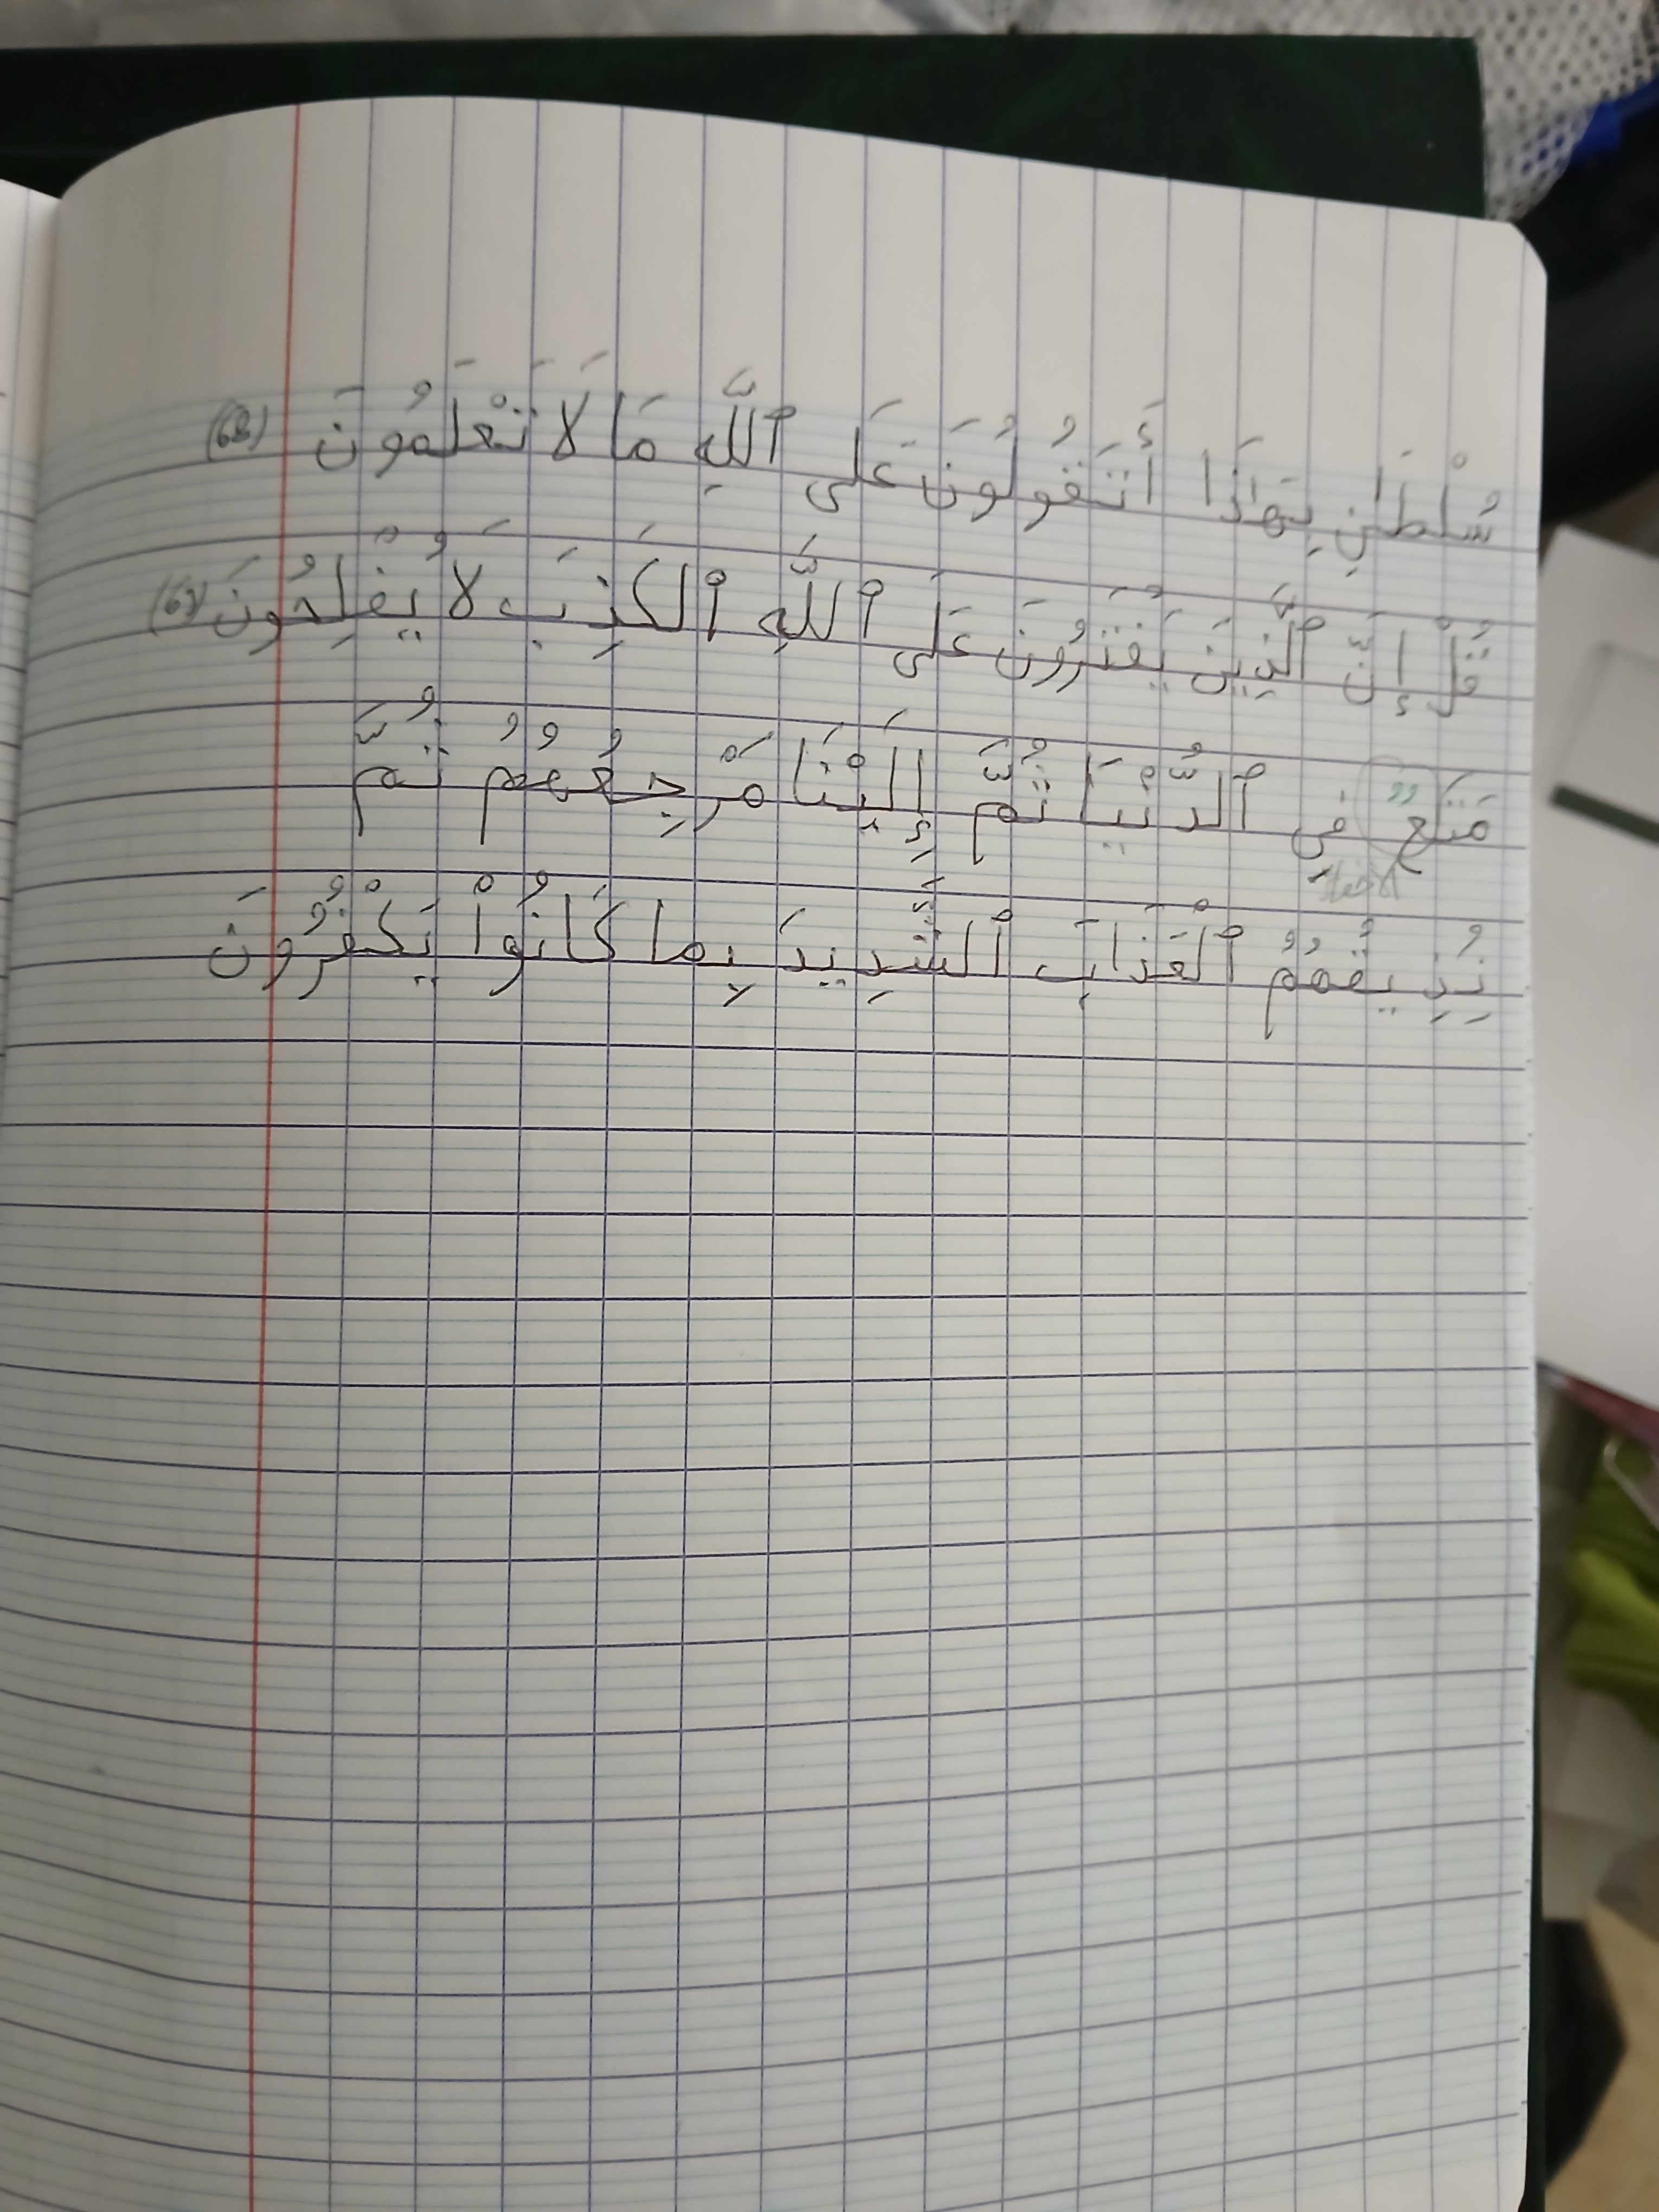 سُلْطَٰنِ بِهَٰذَا أَتَقُولُونَ عَلَى ٱللَّهِ مَا لَا تَعْلَمُونَ (68)
قُلْ إِنَّ ٱلَّذِينَ يَفْتَرُونَ عَلَى ٱللَّهِ ٱلكَذِبَ لَا يُفْلِحُونَ (69)
مَتَٰعٌ فِي ٱلدُّنْيَا ثُمَّ إِلَيْنَا مَرْجِعُهُمْ ثُمَّ
نُذِيقُهُمُ ٱلْعَذَابَ ٱلشَّدِيدَ بِمَا كَانُوا۟ يَكْفُرُونَ